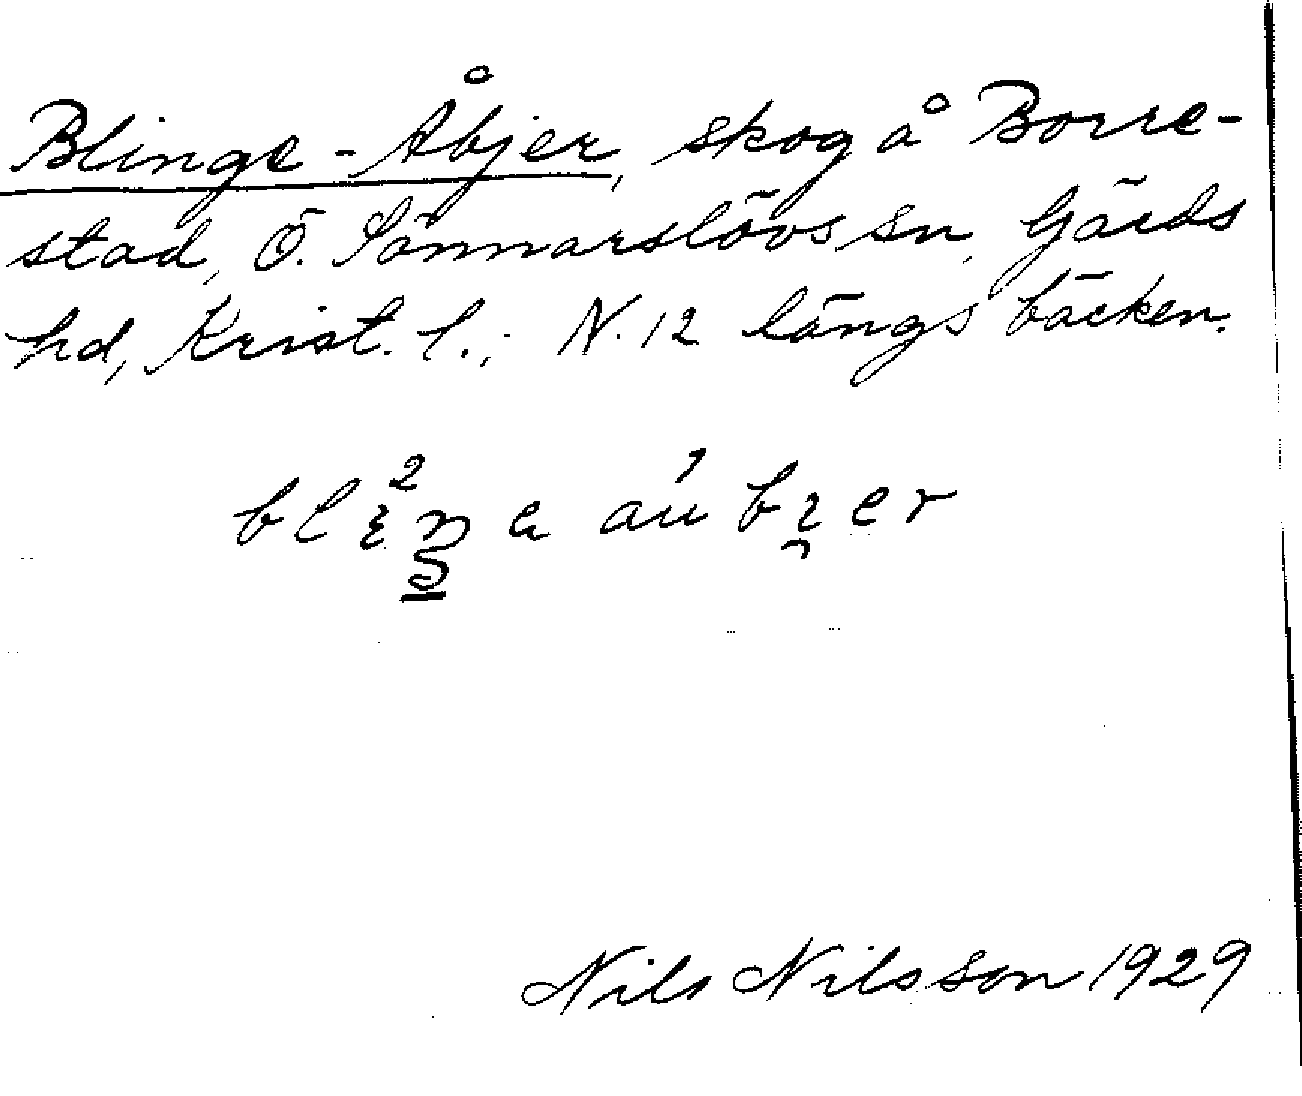 Blinge-Åbjer, skog å Borre-
stad, Ö. Sönnarslövs sn, Gärds
hd, Krist. l.; N. 12 längs bäcken.
Nils Nilsson 1929